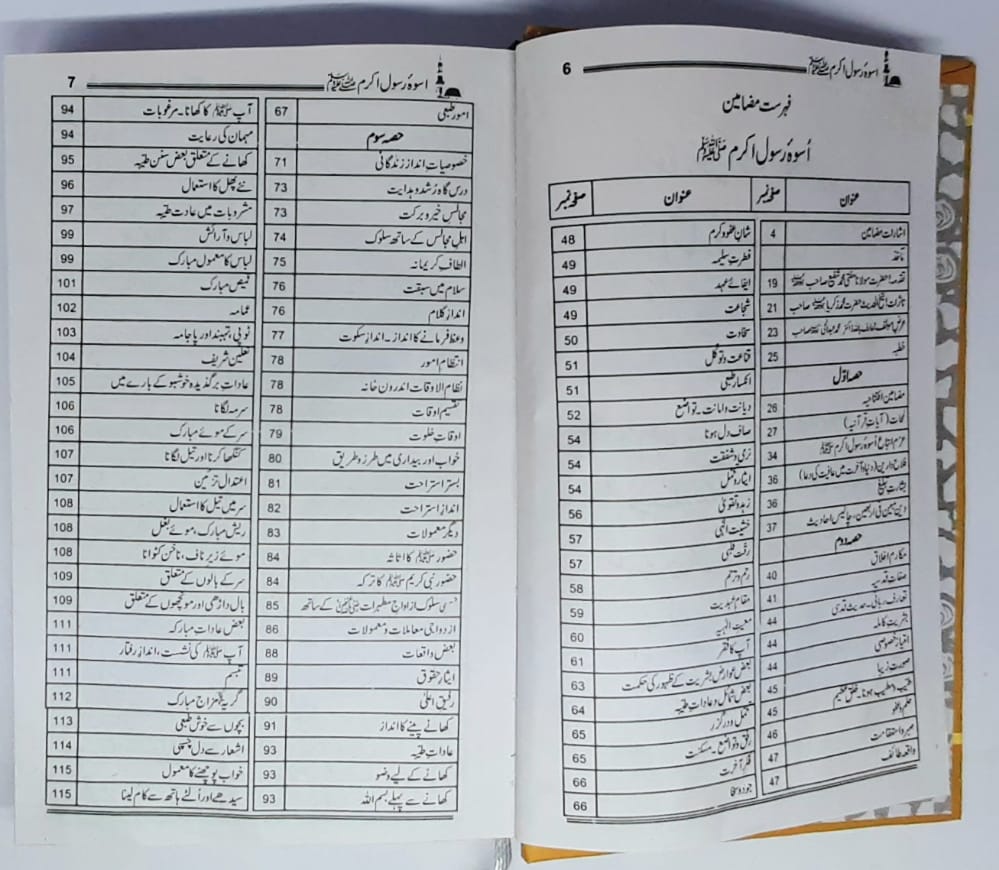 اسوۂ رسول اکرم ﷺ 6
فہرست مضامین
اُسوۂ رسول اکرم ﷺ
عنوان صفحہ نمبر
اشارات مضامین 4
ماٰخذ
تقدمہ: حضرت مولانا مفتی محمد شفیع صاحب 19
تاثرات: شیخ الحدیث حضرت محمد زکریا صاحب 21
عرض مؤلف عارف باللہ ڈاکٹر محمد عبدالحئی صاحب 23
خطبہ 25
حصہ اول
مضامین افتتاحیہ 26
لمحات (آیات قرآنیہ) 27
عزم اتباع اُسوۂ رسول اکرم ﷺ 34
فلاح دارین (دنیا و آخرت میں عافیت کی دعا) 36
بشارت تبلیغ 36
دین مبین فی اربعین، چالیس احادیث 37
حصہ دوم
مکارم اخلاق
صفات قدسیہ 40
تعارف ربانی۔ حدیث قدسی 41
بشریت کاملہ 44
امتیاز خصوصی 44
صورت زیبا 44
طیب و مطیب ہونا۔ خلق عظیم 45
حلم و عفو 45
صبر و استقامت 46
واقعہ طائف 47
47
عنوان صفحہ نمبر
شان عفو و کرم 48
فطرت سلیمہ 49
ایفائے عہد 49
شجاعت 49
سخاوت 50
قناعت و توکل 51
انکسار طبعی 51
دیانت و امانت۔ تواضع 52
صاف دل ہونا 54
نرمی و شفقت 54
ایثار و تحمل 54
زہد و تقویٰ 56
خشیت الٰہی 57
رقت قلبی 57
رحم و ترحم 58
مقام عبدیت 59
معیت الٰہیہ 60
آپ کا فقر 61
بعض عوارض بشریت کے ظہور کی حکمت 63
بعض شمائل و عادات طیبہ 64
تحمل و درگزر 65
رفق و تواضع۔ مسکنت 65
فکر آخرت 66
جود و سخا 66
اسوۂ رسول اکرم ﷺ 7
امور طبعی 67
حصہ سوم
خصوصیات انداز زندگانی 71
درس گاہ رشد و ہدایت 73
مجالس خیر و برکت 73
اہل مجالس کے ساتھ سلوک 74
الطاف کریمانہ 75
سلام میں سبقت 76
انداز کلام 76
وعظ فرمانے کا انداز۔ انداز سکوت 77
انتظام امور 78
نظام الاوقات اندرون خانہ 78
تقسیم اوقات 78
اوقات خلوت 79
خواب اور بیداری میں طرز و طریق 80
بستر استراحت 81
انداز استراحت 82
دیگر معمولات 83
حضور ﷺ کا اثاثہ 84
حضور نبی کریم ﷺ کا ترکہ 84
حسن سلوک ازواج مطہرات کے ساتھ 85
ازدواجی معاملات و معمولات 86
بعض واقعات 88
ایثار حقوق 89
رفیق اعلیٰ 90
کھانے پینے کا انداز 91
عادات طیبہ 93
کھانے کے لیے وضو 93
کھانے سے پہلے بسم اللہ 93
آپ ﷺ کا کھانا۔ مرغوبات 94
مہمان کی رعایت 94
کھانے کے متعلق بعض سنن طیبہ 95
نئے پھل کا استعمال 96
مشروبات میں عادت طیبہ 97
لباس و آرائش 99
لباس کا معمول مبارک 99
قمیص مبارک 101
عمامہ 102
ٹوپی، تہبند اور پاجامہ 103
نعلین شریف 104
عادات برگذیدہ خوشبو کے بارے میں 105
سرمہ لگانا 106
سر کے موئے مبارک 106
کنگھا کرنا اور تیل لگانا 107
اعتدال تزئین 107
سر میں تیل کا استعمال 108
ریش مبارک، موئے بغل 108
موئے زیر ناف، ناخن کٹوانا 108
سر کے بالوں کے متعلق 109
بال داڑھی اور مونچھوں کے متعلق 109
بعض عادات مبارکہ 111
آپ ﷺ کی نشست، انداز رفتار 111
تبسم 111
گریہ مزاج مبارک 112
بچوں سے خوش طبعی 113
اشعار سے دل چسپی 114
خواب پوچھنے کا معمول 115
سیدھے اور اُلٹے ہاتھ سے کام لینا 115